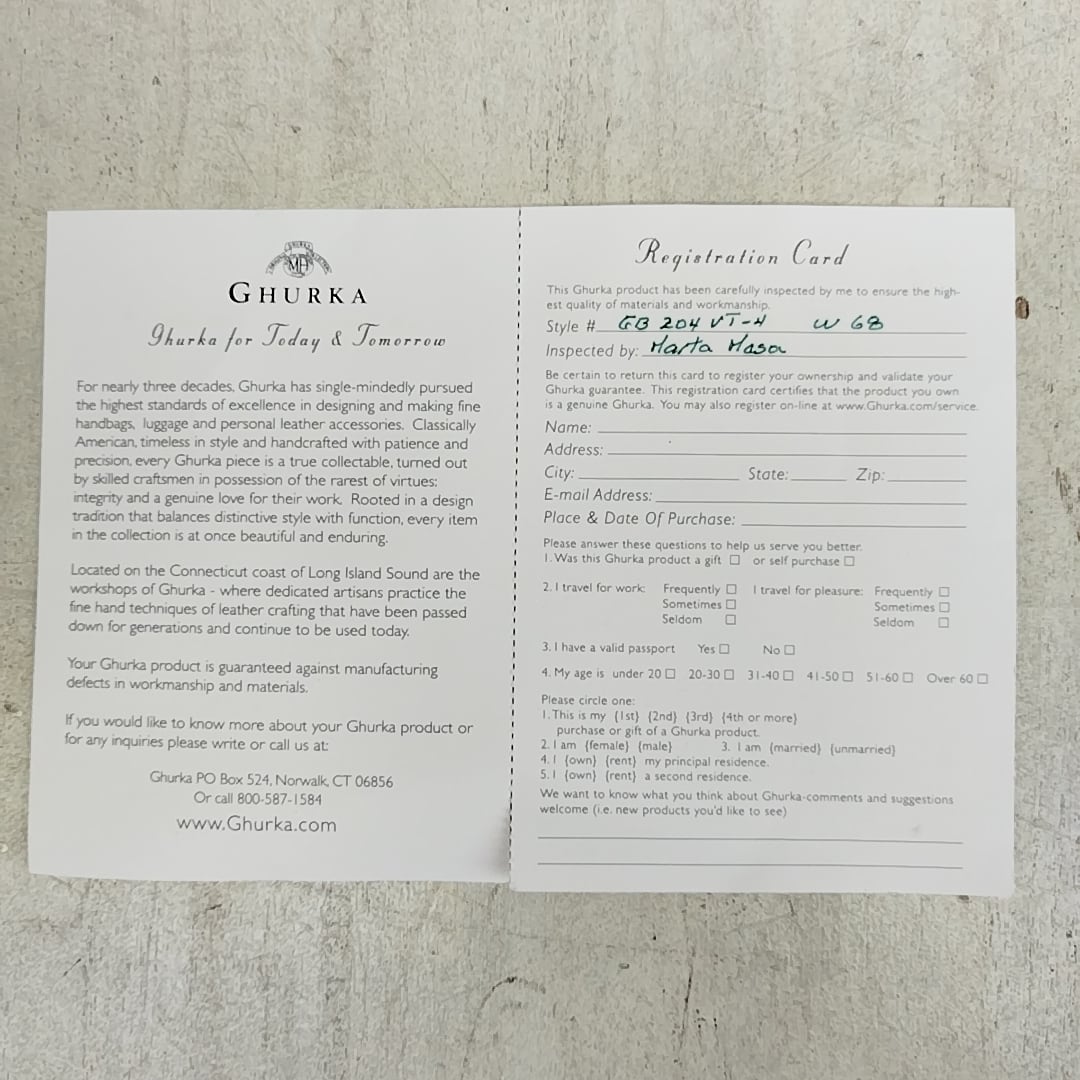 MH
GHURKA
Ghurka for Today & Tomorrow
For nearly three decades, Ghurka has single-mindedly pursued
the highest standards of excellence in designing and making fine
handbags, luggage and personal leather accessories. Classically
American, timeless in style and handcrafted with patience and
precision, every Ghurka piece is a true collectable, turned out
by skilled craftsmen in possession of the rarest of virtues:
integrity and a genuine love for their work. Rooted in a design
tradition that balances distinctive style with function, every item
in the collection is at once beautiful and enduring.
Located on the Connecticut coast of Long Island Sound are the
workshops of Ghurka - where dedicated artisans practice the
fine hand techniques of leather crafting that have been passed
down for generations and continue to be used today.
Your Ghurka product is guaranteed against manufacturing
defects in workmanship and materials.
If you would like to know more about your Ghurka product or
for any inquiries please write or call us at:
Ghurka PO Box 524, Norwalk, CT 06856
Or call 800-587-1584
www.Ghurka.com
Registration Card
This Ghurka product has been carefully inspected by me to ensure the high-
est quality of materials and workmanship.
Style # GB 204 VT-4 W 68
Inspected by: Marta Masa
Be certain to return this card to register your ownership and validate your
Ghurka guarantee. This registration card certifies that the product you own
is a genuine Ghurka. You may also register on-line at www.Ghurka.com/service.
Name:
Address:
City: State: Zip:
E-mail Address:
Place & Date Of Purchase:
Please answer these questions to help us serve you better.
1. Was this Ghurka product a gift ☐ or self purchase ☐
2. I travel for work: Frequently ☐ I travel for pleasure: Frequently ☐
Sometimes ☐ Sometimes ☐
Seldom ☐ Seldom ☐
3. I have a valid passport Yes ☐ No ☐
4. My age is under 20 ☐ 20-30 ☐ 31-40 ☐ 41-50 ☐ 51-60 ☐ Over 60 ☐
Please circle one:
1. This is my {1st} {2nd} {3rd} {4th or more}
purchase or gift of a Ghurka product.
2. I am {female} {male} 3. I am {married} {unmarried}
4. I {own} {rent} my principal residence.
5. I {own} {rent} a second residence.
We want to know what you think about Ghurka-comments and suggestions
welcome (i.e. new products you'd like to see)